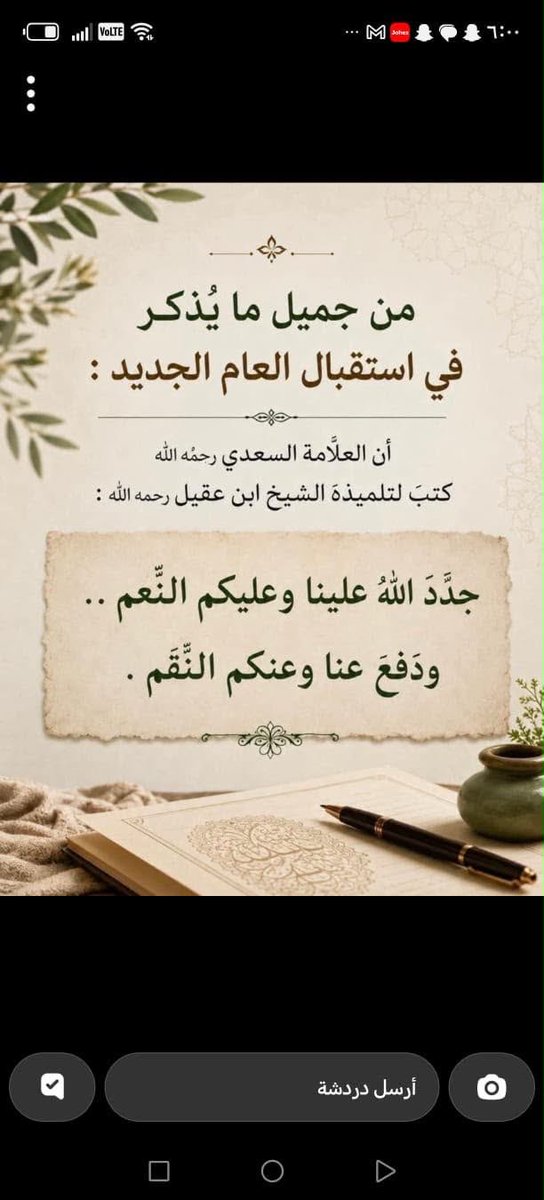 VoLTE
Johex
٦:٠٠
من جميل ما يُذكـر
في استقبال العام الجديد :
أن العلَّامة السعدي رحمُه الله
كتبَ لتلميذهَ الشيخ ابن عقيل رحمه الله :
جدَّدَ اللهُ علينا وعليكم النِّعم ..
ودَفعَ عنا وعنكم النِّقَم .
أرسل دردشة